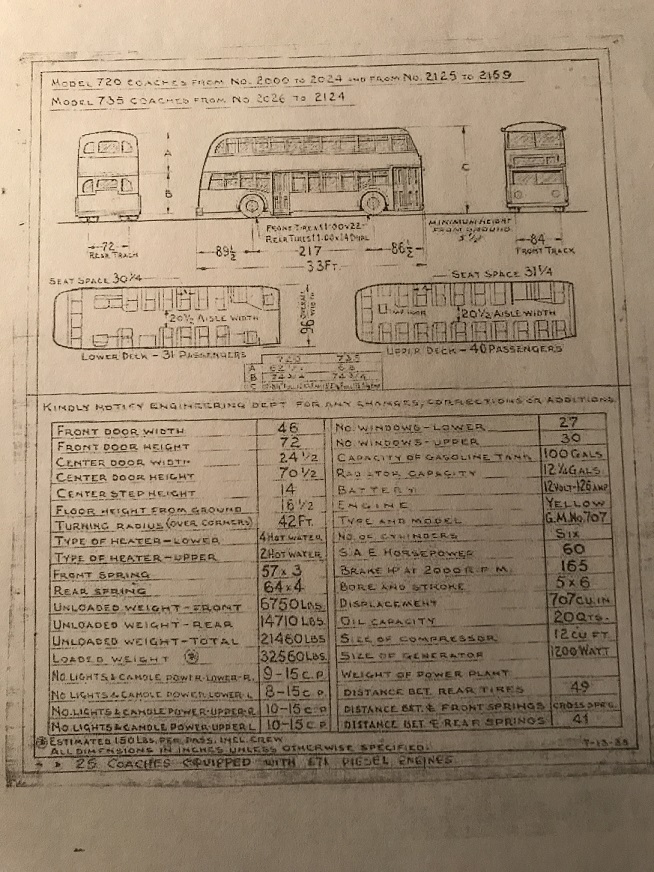 MODEL 720 COACHES FROM NO. 2000 TO 2024 AND FROM NO. 2125 TO 2159
MODEL 735 COACHES FROM NO. 2026 TO 2124
A
B
C
FRONT TIRES 11.00X22
REAR TIRES 11.00X24 DUAL
MINIMUM HEIGHT
FROM GROUND
5 1/2
72
REAR TRACK
89 1/2
217
86 1/2
33 FT.
84
FRONT TRACK
SEAT SPACE 30 1/4
SEAT SPACE 31 1/4
20 1/2 AISLE WIDTH
96 OVERALL WIDTH
20 1/2 AISLE WIDTH
LOWER DECK - 31 PASSENGERS
UPPER DECK - 40 PASSENGERS
720 735
A
B
C
KINDLY NOTIFY ENGINEERING DEPT FOR ANY CHANGES, CORRECTIONS OR ADDITIONS.
FRONT DOOR WIDTH 46
FRONT DOOR HEIGHT 72
CENTER DOOR WIDTH 24 1/2
CENTER DOOR HEIGHT 70 1/2
CENTER STEP HEIGHT 14
FLOOR HEIGHT FROM GROUND 16 1/2
TURNING RADIUS (OVER CORNERS) 42 FT.
TYPE OF HEATER-LOWER 4 HOT WATER
TYPE OF HEATER-UPPER 2 HOT WATER
FRONT SPRING 57 x 3
REAR SPRING 64 x 4
UNLOADED WEIGHT-FRONT 6750 LBS
UNLOADED WEIGHT-REAR 14710 LBS
UNLOADED WEIGHT-TOTAL 21460 LBS
LOADED WEIGHT 32560 LBS
NO. LIGHTS & CANDLE POWER-LOWER-R. 9-15 C.P.
NO LIGHTS & CANDLE POWER-LOWER L 8-15 C.P.
NO. LIGHTS & CANDLE POWER-UPPER-R 10-15 C.P.
NO. LIGHTS & CANDLE POWER-UPPER L 10-15 C.P.
NO. WINDOWS-LOWER 27
NO. WINDOWS-UPPER 30
CAPACITY OF GASOLINE TANK 100 GALS
RADIATOR CAPACITY 12 1/4 GALS
BATTERY 12 VOLT-126 AMP
ENGINE YELLOW
TYPE AND MODEL G.M. NO. 707
NO. OF CYLINDERS SIX
S.A.E HORSEPOWER 60
BRAKE H.P. AT 2000 R.P.M. 165
BORE AND STROKE 5 x 6
DISPLACEMENT 707 CU. IN
OIL CAPACITY 20 QTS.
SIZE OF COMPRESSOR 12 CU FT.
SIZE OF GENERATOR 1200 WATT
WEIGHT OF POWER PLANT
DISTANCE BET. REAR TIRES 49
DISTANCE BET. ℄ FRONT SPRINGS CROSS SPRG.
DISTANCE BET ℄ REAR SPRINGS 41
ESTIMATED 150 LBS. PER PASS. INCL. CREW
ALL DIMENSIONS IN INCHES UNLESS OTHERWISE SPECIFIED.
25 COACHES EQUIPPED WITH 671 DIESEL ENGINES